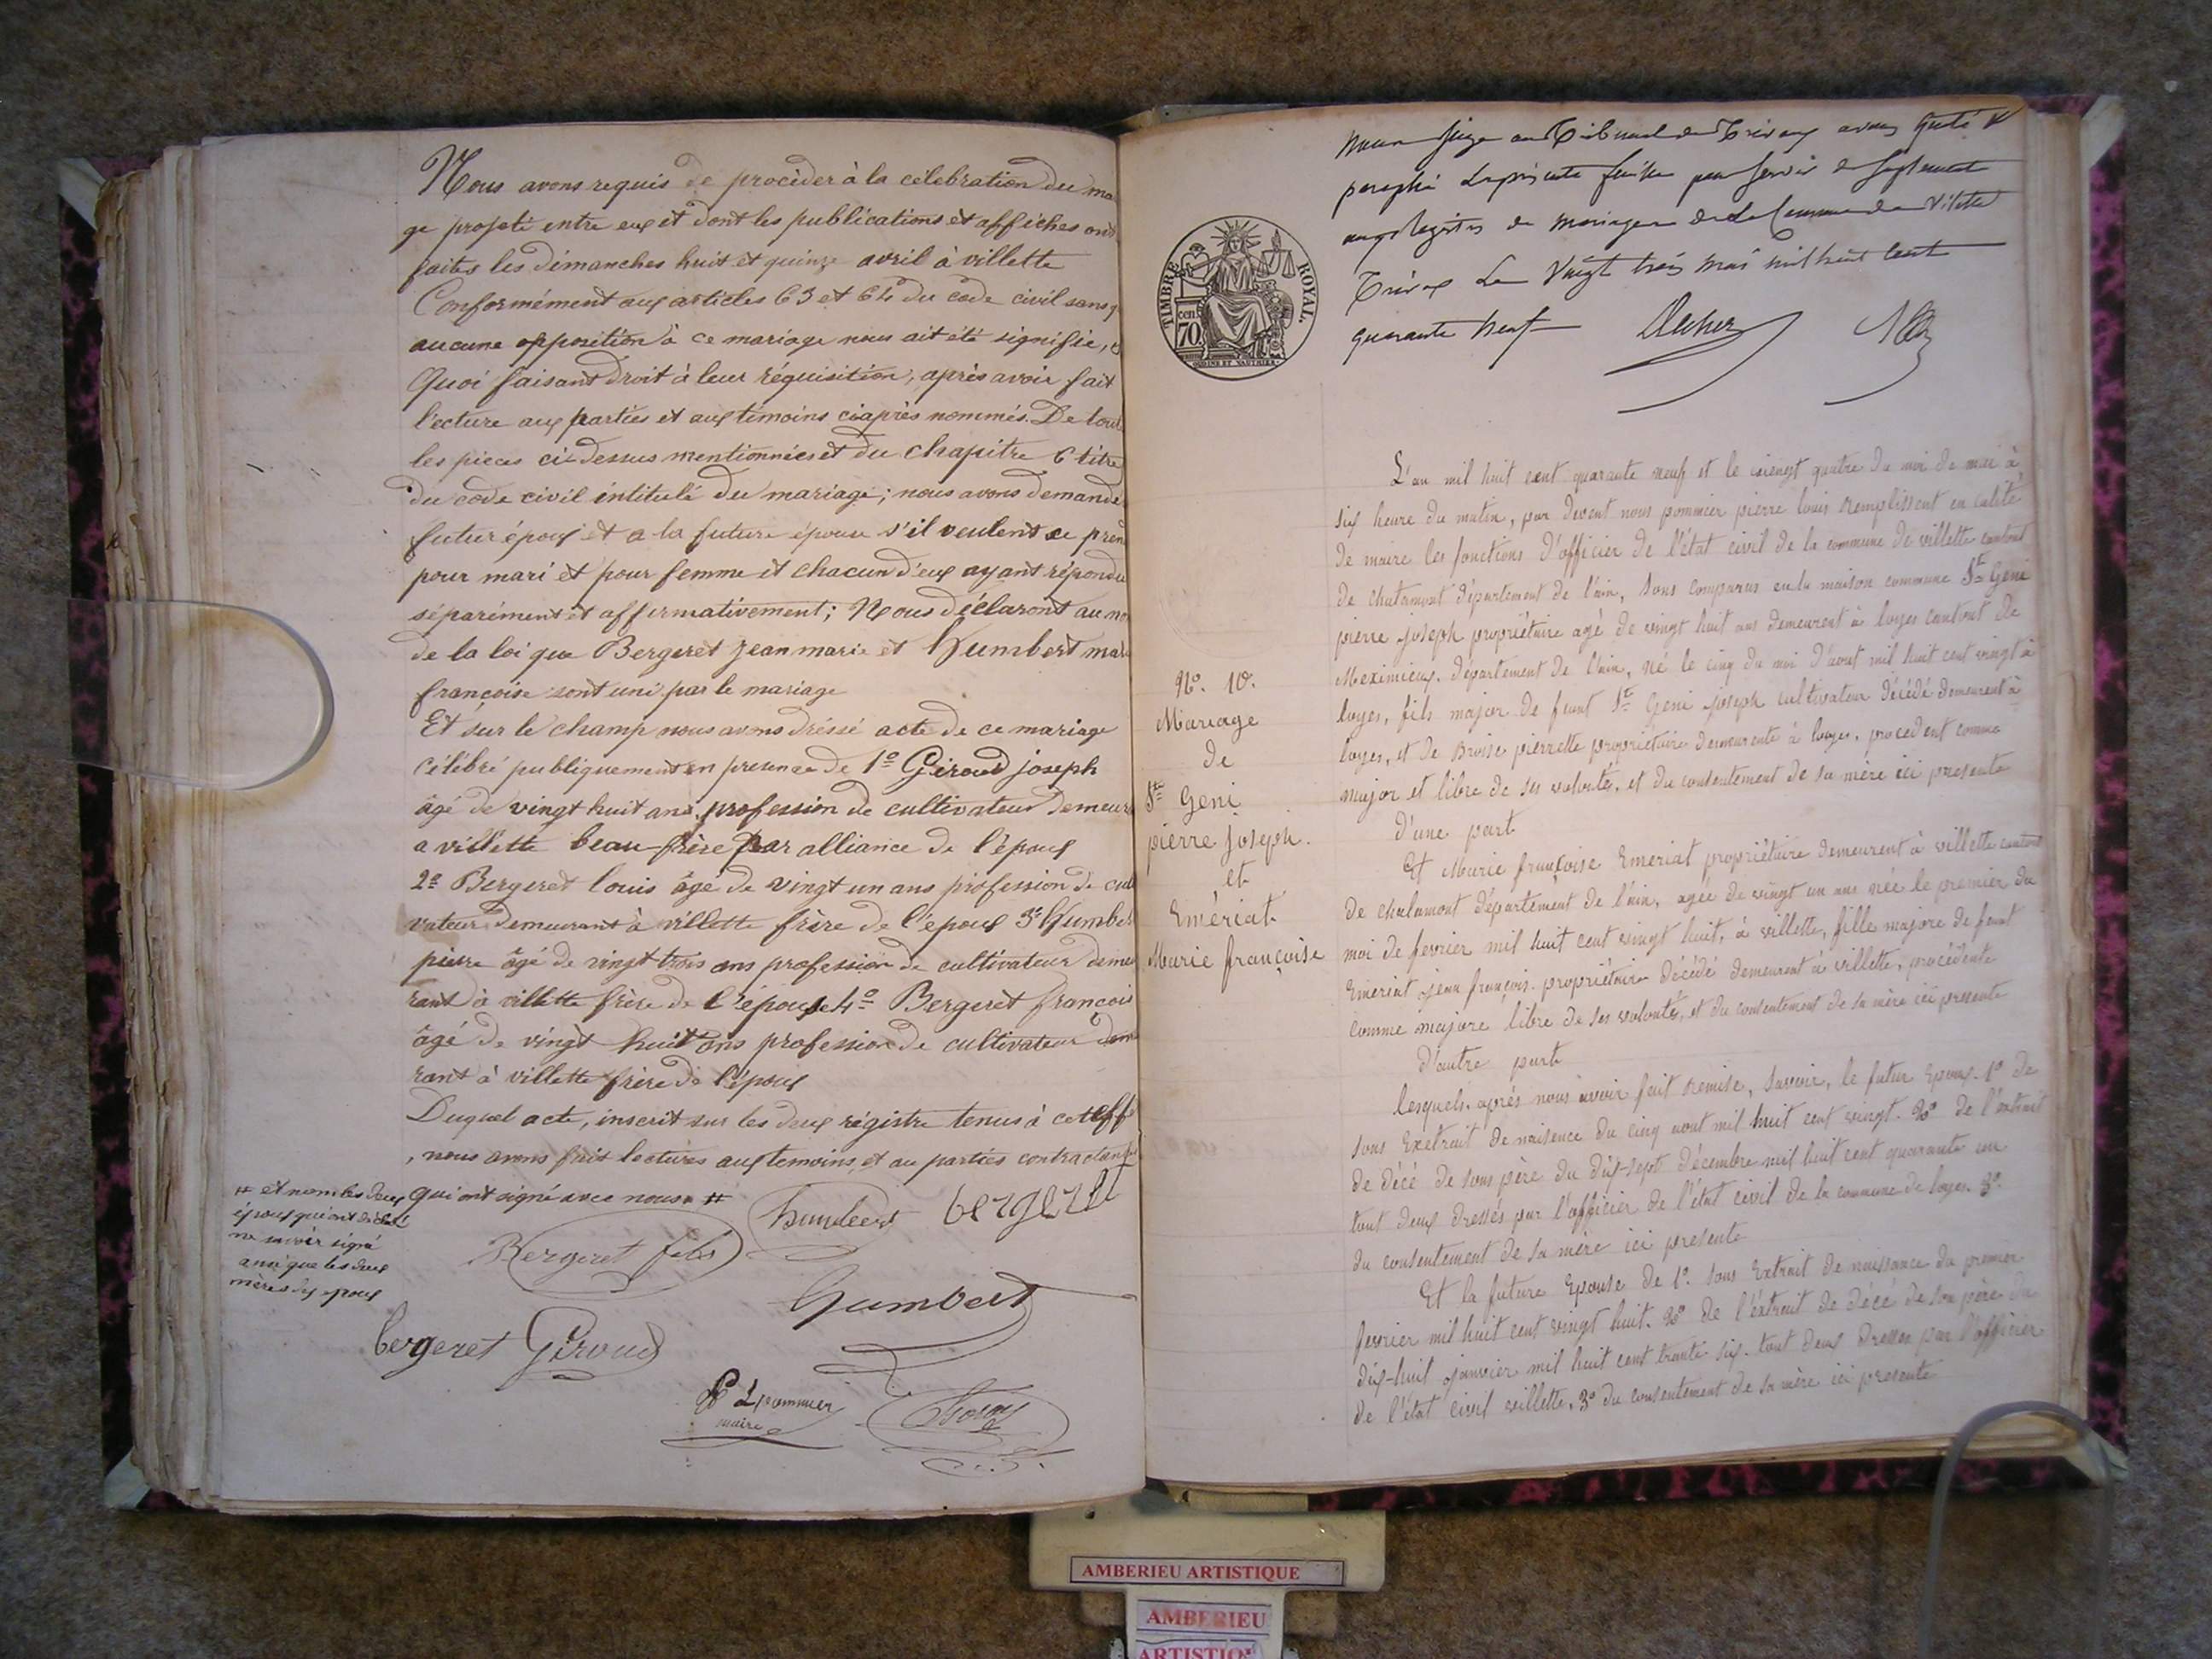 Nous avons requis de procèder à la célebration du ma
ge projeté entre eux et dont les publications et affiches ont
faites les dimanches huit et quinze avril à villette
Conformément aux articles 63 et 64 du code civil sans q
aucune opposition à ce mariage nous ait été signifié, 
Quoi faisant droit à leur réquisition, après avoir fait
l'ecture aux parties et aux témoins ciaprès nommés. De toute
les pieces ci-dessus mentionnées et du chapitre 6 titre
du code civil intitulé du mariage; nous avons demandé
futur époux et a la future épouse s'il veulent se pren
pour mari et pour femme et chacun d'eux ayant répondu
séparément et affirmativement; Nous déclarons au no
de la loi que Bergeret jean marie et Humbert mar
françoise sont uni par le mariage
Et sur le champ nous avons dréssé acte de ce mariage
célébré publiquement en presence de 1º Giroud joseph
âgé de vingt huit ans, profession de cultivateur demeur
a villette beau-frère par alliance de l'époux
2º Bergeret louis âgé de vingt un ans profession de cul
vateur demeurant à villette frère de l'époux 3º Humber
pierre âgé de vingt trois ans profession de cultivateur demeu
rant à villette frère de l'épouse 4º Bergeret françois
âgé de vingt huit ans profession de cultivateur dem
rant à villette frère de l'époux
Duquel acte, inscrit sur les deux régistre tenus à cet eff
, nous avons fait lectures aux temoins, et au parties contractantes
qui ont signé avec nous #
# et non les deux
époux qui ont déclaré
ne savoir signé
ainsi que les deux
mères des epoux
humbert bergeret
Bergeret fils
Humbert
bergeret Giroud
P L pommier
maire
TIMBRE ROYAL.
cen. 70.
Nous Juge au Tribunal de Trévoux avons Coté &
paraphé la présente feuille pour servir de supplement
aux Registres de Mariages de la Commune de Villette
Trévoux Le Vingt trois Mai mil huit cent
quarante neuf
Nº. 10.
Mariage
de
St Geni
pierre joseph.
et
Emériat
Marie françoise
L'an mil huit cent quarante neuf et le viengt quatre du moi de mai à
six heure du matin, par devent nous pommier pierre louis Remplissent en calité
de maire les fonctions d'officier de l'état civil de la commune de villette cantont
de chalamont département de l'ain, sons comparus en la maison commune St Geni
pierre joseph propriétaire agé de vingt huit ans demeurent à loyes cantont de
Meximieux. département de l'ain, né le cinq du moi d'aout mil huit cent vingt à
loyes, fils major de feaut St Geni joseph cultivateur décédé demeurent à
loyes, et de Broise pierrette proprietaire demeurente à loyes. procedent comme
major et libre de ses volontés, et du consentement de sa mère ici presente
d'une part
Et Marie françoise Emeriat propriétaire demeurent à villette cantont
de chalamont département de l'ain, agée de vingt un ans née le premier du
moi de fevrier mil huit cent vingt huit, à villette, fille majore de feaut
Emeriat jean françois. propriétaire décédé demeurent à villette, procédente
comme majore libre de ses volontés, et du consentement de sa mère ici presente
d'autre part
lesquels. après nous avoir fait remise, savoir, le futur Epoux. 1º de
sons Exetrait de naisence du cinq aout mil huit cent vingt. 2º de l'extrait
de décé de sons père du dix-sept décembre mil huit cent quarante un
tout deux dressés par l'officier de l'état civil de la commune de loyes. 3º
du consentement de sa mère ici presente
Et la future Epouse de 1º. sons Extrait de naissance du premier
fevrier mil huit cent vingt huit. 2º de l'extrait de décé de son père du
dix-huit janvier mil huit cent trante six. tout deux dresses par l'officier
de l'état civil villette. 3º du consentement de sa mère ici presente
AMBERIEU ARTISTIQUE
AMBERIEU
ARTISTIQ